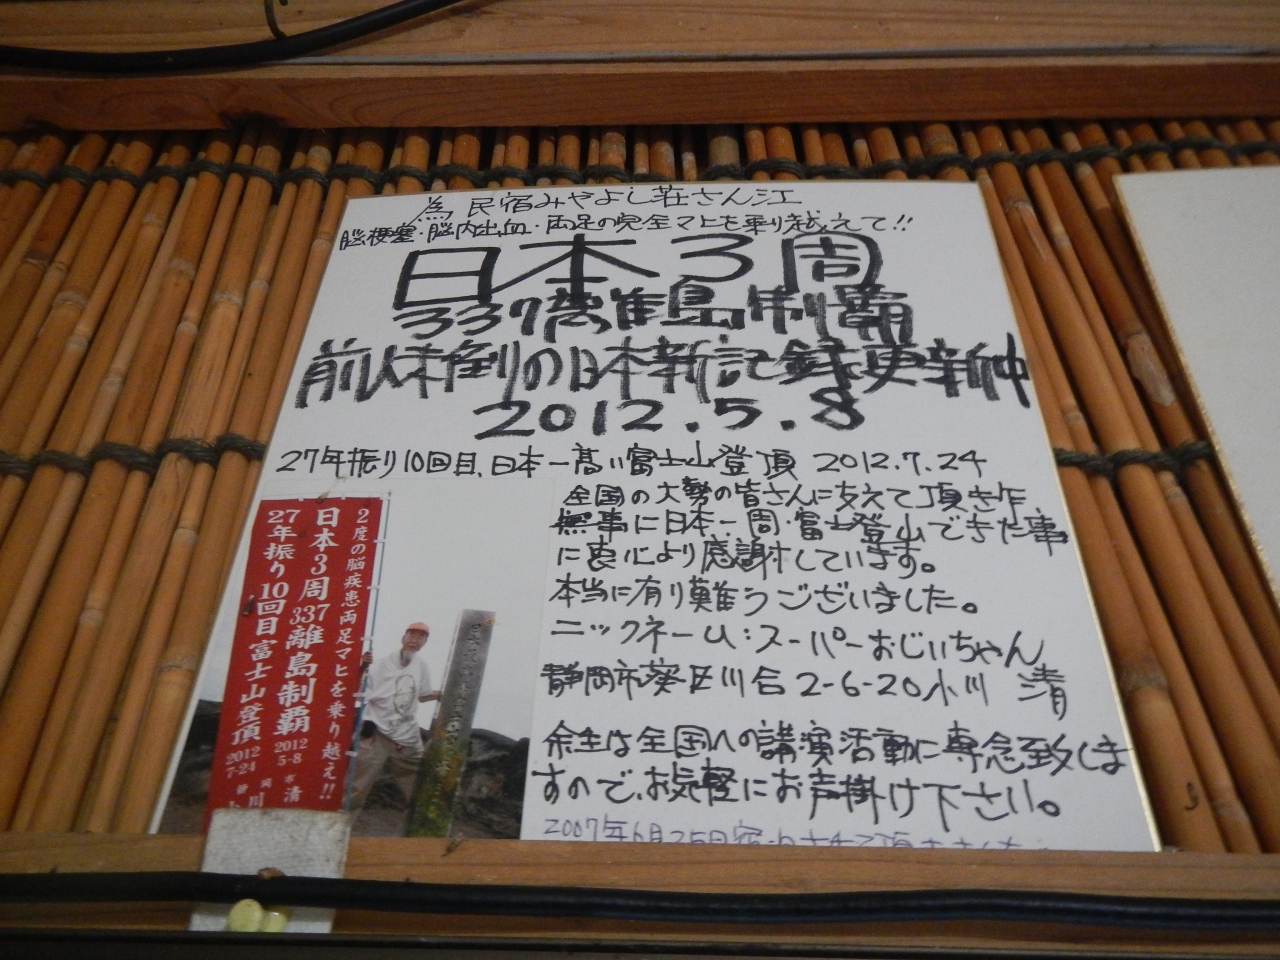 為 民宿みやよし荘さん江
脳梗塞・脳内出血・両足の完全マヒを乗り越えて!!
日本3周
337離島制覇
前人未倒の日本新記録更新中
2012.5.8
27年振り10回目、日本一高い富士山登頂 2012.7.24
全国の大勢の皆さんに支えて頂き乍
無事に日本一周・富士登山できた事
に衷心より感謝しています。
本当に有り難うございました。
ニックネーム:スーパーおじいちゃん
静岡市葵区川合2-6-20小川 清
余生は全国への講演活動に専念致しま
すので、お気軽にお声掛け下さい。
2007年6月25日宿
2度の脳疾患両足マヒを乗り越え!!
日本3周337離島制覇 2012 5-8
27年振り10回目富士山登頂 2012 7-24
静岡市
川清